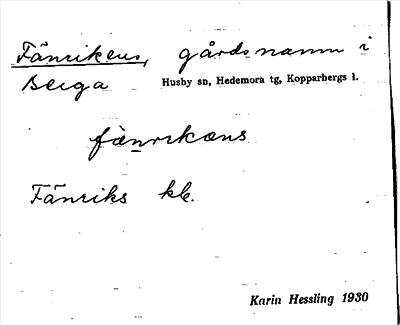 Fänrikens, gårdsnamn i
Berga Husby sn, Hedemora tg, Kopparbergs l.
fänrikæns
Fänriks kb.
Karin Hessling 1930